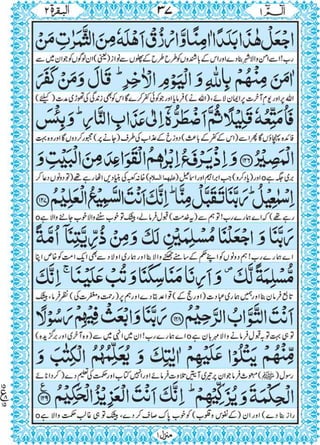 البقرة ٢
٣٧
الٓمّٓ ١
اجْعَلْ هٰذَا بَلَدًا اٰمِنًا وَّارْزُقْ اَهْلَهٗ مِنَ الثَّمَرٰتِ مَنْ
رب! اسے امن والا شہر بنا دے اور اس کے باشندوں کو طرح طرح کے پھلوں سے نواز (یعنی) ان لوگوں کو جو ان میں سے
اٰمَنَ مِنْهُمْ بِاللّٰهِ وَ الْيَوْمِ الْاٰخِرِ ؕ قَالَ وَ مَنْ كَفَرَ
اللہ پر اور یومِ آخرت پر ایمان لائے، (اللہ نے) فرمایا: اور جو کوئی کفر کرے گا اس کو بھی زندگی کی تھوڑی مدت (کیلئے)
فَاُمَتِّعُهٗ قَلِيْلًا ثُمَّ اَضْطَرُّهٗۤ اِلٰى عَذَابِ النَّارِ ؕ وَ بِئْسَ
فائدہ پہنچاؤں گا پھر اسے (اس کے کفر کے باعث) دوزخ کے عذاب کی طرف (جانے پر) مجبور کر دوں گا اور وہ بہت
الْمَصِيْرُ ﴿۱۲۶﴾ وَ اِذْ يَرْفَعُ اِبْرٰهٖمُ الْقَوَاعِدَ مِنَ الْبَيْتِ وَ
بری جگہ ہے۝ اور (یاد کرو) جب ابراہیم اور اسماعیل (علیھما السلام) خانہ کعبہ کی بنیادیں اٹھا رہے تھے (تو دونوں دعا کر
اِسْمٰعِيْلُ ؕ رَبَّنَا تَقَبَّلْ مِنَّا ؕ اِنَّكَ اَنْتَ السَّمِيْعُ الْعَلِيْمُ ﴿۱۲۷﴾
رہے تھے) کہ اے ہمارے رب! تو ہم سے (یہ خدمت) قبول فرما لے، بیشک تو خوب سننے والا خوب جاننے والا ہے۝
رَبَّنَا وَ اجْعَلْنَا مُسْلِمَيْنِ لَكَ وَ مِنْ ذُرِّيَّتِنَاۤ اُمَّةً
اے ہمارے رب! ہم دونوں کو اپنے حکم کے سامنے جھکنے والا بنا اور ہماری اولاد سے بھی ایک امت کو خاص اپنا
مُّسْلِمَةً لَّكَ ۪ وَ اَرِنَا مَنَاسِكَنَا وَ تُبْ عَلَيْنَا ۚ اِنَّكَ
تابع فرمان بنا اور ہمیں ہماری عبادت (اور حج کے) قواعد بتا دے اور ہم پر (رحمت و مغفرت کی) نظر فرما، بیشک
اَنْتَ التَّوَّابُ الرَّحِيْمُ ﴿۱۲۸﴾ رَبَّنَا وَ ابْعَثْ فِيْهِمْ رَسُوْلًا
تو ہی بہت توبہ قبول فرمانے والا مہربان ہے۝ اے ہمارے رب! ان میں انہی میں سے (وہ آخری اور برگزیدہ)
مِّنْهُمْ يَتْلُوْا عَلَيْهِمْ اٰيٰتِكَ وَ يُعَلِّمُهُمُ الْكِتٰبَ وَ
رسول (ﷺ) مبعوث فرما جو ان پر تیری آیتیں تلاوت فرمائے اور انہیں کتاب اور حکمت کی تعلیم دے (کر دانائے
الْحِكْمَةَ وَ يُزَكِّيْهِمْ ؕ اِنَّكَ اَنْتَ الْعَزِيْزُ الْحَكِيْمُ ﴿۱۲۹﴾
راز بنا دے) اور ان (کے نفوس و قلوب) کو خوب پاک صاف کر دے، بیشک تو ہی غالب حکمت والا ہے۝
منزل ١